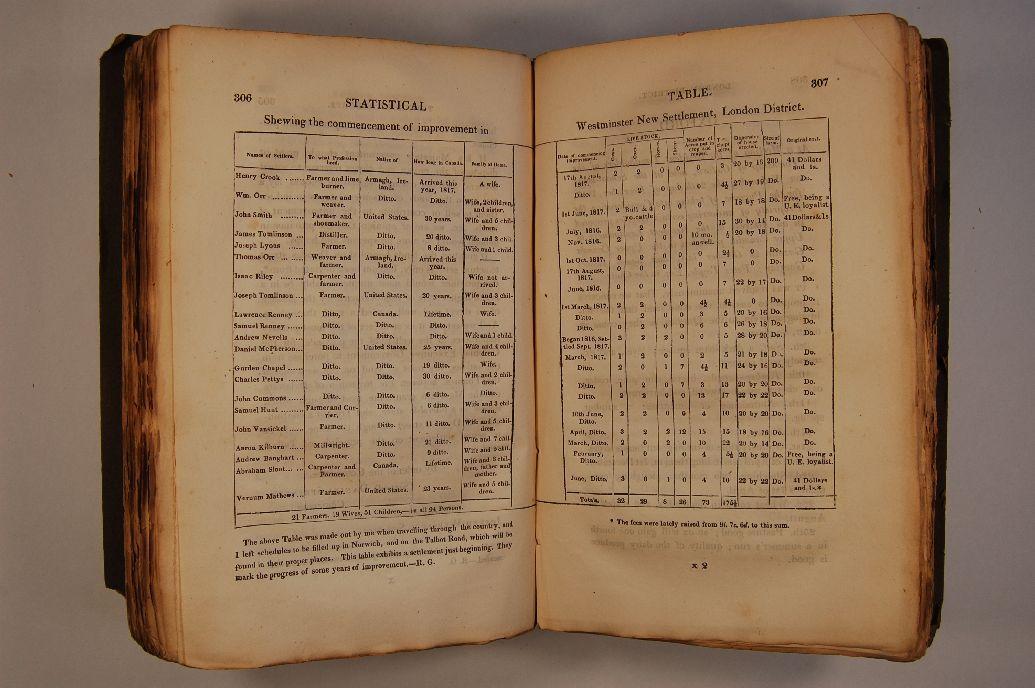 306
STATISTICAL
Shewing the commencement of improvement in
Names of Settlers. To what Profession bred. Native of How long in Canada. Family at Home.
Henry Crook ....... Farmer and lime burner. Armagh, Ireland. Arrived this year, 1817. A wife.
Wm. Orr ........... Farmer and weaver. Ditto. Ditto. Wife, 2 children, and sister.
John Smith ....... Farmer and shoemaker. United States. 30 years. Wife and 5 children.
James Tomlinson ... Distiller. Ditto. 20 ditto. Wife and 3 chil
Joseph Lyons ...... Farmer. Ditto. 8 ditto. Wife and 1 child.
Thomas Orr ... Weaver and farmer. Armagh, Ireland. Arrived this year. ——
Isaac Riley ........ Carpenter and farmer. Ditto. Ditto. Wife not arrived.
Joseph Tomlinson ... Farmer. United States. 20 years. Wife and 3 children.
Lawrence Renney ... Ditto. Canada. Lifetime. Wife.
Samuel Renney ...... Ditto. Ditto. Ditto. ——
Andrew Nevells ... Ditto. Ditto. Ditto. Wife and 1 child.
Daniel McPherson... Ditto. United States. 25 years. Wife and 4 children.
Gorden Chapel ...... Ditto. Ditto. 19 ditto. Wife.
Charles Pettys ...... Ditto. Ditto. 30 ditto. Wife and 2 children.
John Commons ...... Ditto. Ditto. 6 ditto. Ditto.
Samuel Hunt ......... Farmer and Currier. Ditto. 6 ditto. Wife and 3 children.
John Vansickel ...... Farmer. Ditto. 11 ditto. Wife and 5 children.
Aaron Kilburn ...... Millwright. Ditto. 21 ditto. Wife and 7 chil.
Andrew Banghart ... Carpenter. Ditto. 9 ditto. Wife and 5 chil.
Abraham Slout...... Carpenter and Farmer. Canada. Lifetime. Wife and children, father and mother.
Vernum Mathews ... Farmer. United States. 23 years. Wife and 5 children.
21 Farmers, 19 Wives, 51 Children,—in all 94 Persons.
The above Table was made out by me when travelling through this country, and
I left schedules to be filled up in Norwich, and on the Talbot Road, which will be
found in their proper places. This table exhibits a settlement just beginning. They
mark the progress of some years of improvement.—R. G.
307
TABLE.
Westminster New Settlement, London District.
Date of commencing improvement. LIVE STOCK. Oxen. Cows. Horses. Sheep. Number of Acres put in crop and meadow. Dimensions of house erected. Street form. Original cost.
17th August, 1817. 2 2 0 0 0 3 20 by 16 200 41 Dollars and 1s.
Ditto. 1 2 0 0 0 4½ 27 by 19 Do. Do.
1st June, 1817. 2 Bull & 4 yo. cattle 0 0 0 7 18 by 18 Do. Free, being a U. E. loyalist.
July, 1816. 2 2 0 0 0 15 30 by 11 Do. 41 Dollars & 1s
Nov. 1816. 2 0 0 0 10 mo. an well. ½ 20 by 18 Do. Do.
1st Oct. 1817. 0 0 0 0 0 2½ 0 Do. Do.
17th August, 1817. 0 0 0 0 0 7 0 Do. Do.
June, 1816. 0 0 0 0 0 7 22 by 17 Do. Do.
1st March, 1817. 2 2 0 0 4½ 4½ 0 Do. Do.
Ditto. 1 2 0 0 3 5 20 by 16 Do. Do.
Ditto. 0 2 0 0 6 6 26 by 18 Do. Do.
Began 1816, Settled Sept. 1817. 3 2 2 0 0 5 28 by 20 Do. Do.
March, 1817. 1 2 0 0 2 5 21 by 18 Do. Do.
Ditto. 2 0 1 7 4½ 11 24 by 16 Do. Do.
Ditto. 1 2 0 7 3 13 20 by 20 Do. Do.
Ditto. 2 2 0 0 13 17 22 by 22 Do. Do.
10th June, Ditto. 2 2 0 0 4 10 20 by 20 Do. Do.
April, Ditto. 3 2 2 12 15 15 18 by 16 Do. Do.
March, Ditto. 2 0 2 0 10 22 20 by 14 Do. Do.
February, Ditto. 1 0 0 0 4 5½ 20 by 20 Do. Free, being a U. E. loyalist.
June, Ditto. 3 0 1 0 4 10 22 by 22 Do. 41 Dollars and 1s.*
Totals, 32 29 8 26 73 175½
* The fees were lately raised from 9l. 7s. 6d. to this sum.
x 2